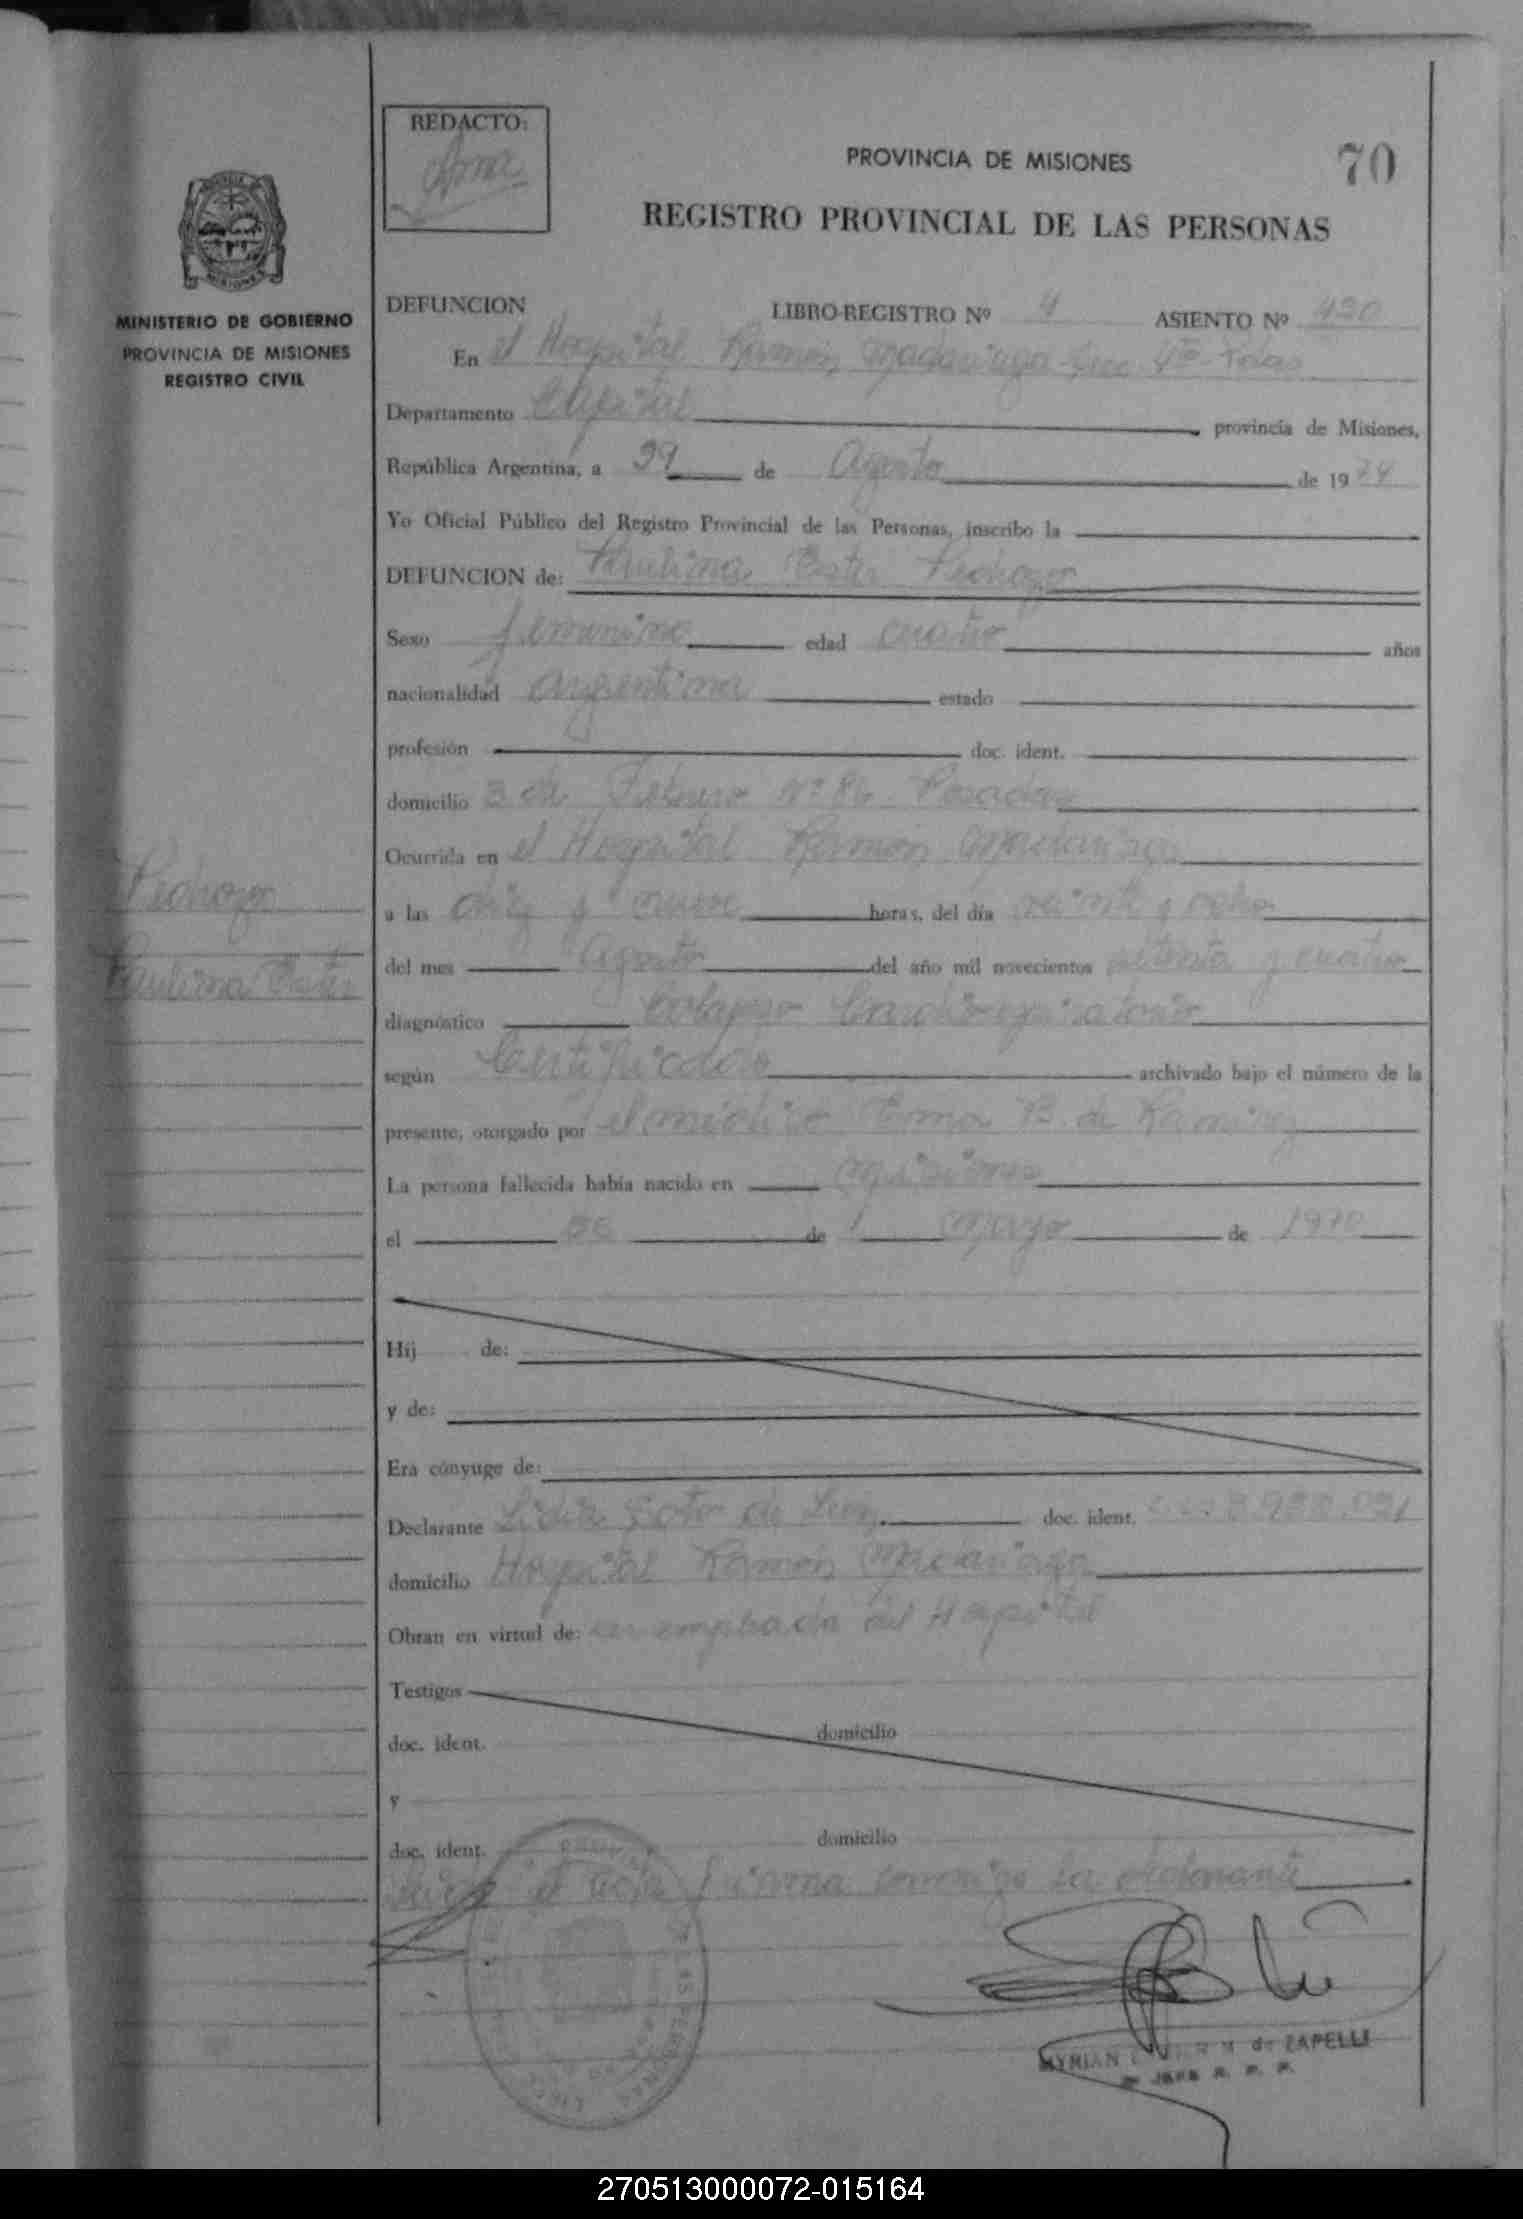 REDACTO:
PROVINCIA DE MISIONES
70
REGISTRO PROVINCIAL DE LAS PERSONAS
MINISTERIO DE GOBIERNO
PROVINCIA DE MISIONES
REGISTRO CIVIL
DEFUNCION LIBRO-REGISTRO Nº 4 ASIENTO Nº 430
En el Hospital Ramón Madariaga - Secc. 4ta - Pdas
Departamento Capital provincia de Misiones,
República Argentina, a 29 de Agosto de 1974
Yo Oficial Público del Registro Provincial de las Personas, inscribo la
DEFUNCION de: Paulina Ester Pedrozo
Sexo femenino edad cuatro años
nacionalidad argentina estado
profesión doc. ident.
domicilio 3 de Febrero Nº 86 Posadas
Ocurrida en el Hospital Ramón Madariaga
a las diez y nueve horas, del día veinte y ocho
del mes Agosto del año mil novecientos setenta y cuatro
diagnóstico Colapso Cardiorespiratorio
según Certificado archivado bajo el número de la
presente, otorgado por el médico Ema B. de Ramirez
La persona fallecida había nacido en Misiones
el de Mayo de 1970
Hij de:
y de:
Era cónyuge de:
Declarante Lidia Soto de doc. ident.
domicilio Hospital Ramón Madariaga
Obran en virtud de: ser empleada del Hospital
Testigos
doc. ident. domicilio
y
doc. ident. domicilio
el acta firma conmigo la declarante
Pedrozo
Paulina Ester
MYRIAN de ZAPELLI
JEFE R. P. P.
270513000072-015164